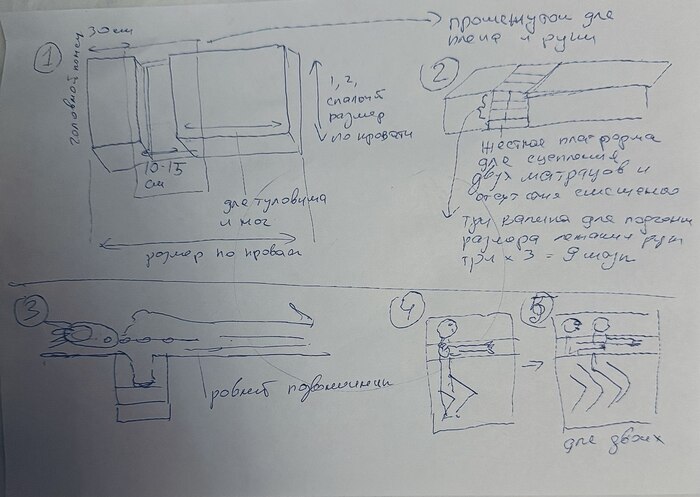 1
30 см
промежуток для
плеча и руки
головной конец
1, 2,
спальн
размер
по кровати
10-15
см
для туловища
и ног
размер по кровати
2
жесткая платформа
для сцепления
двух матрацов и
смещения
три
для подгонки
размера лежания руки
три х 3 = 9 мат
3
ровный позвоночник
4
5
для двоих